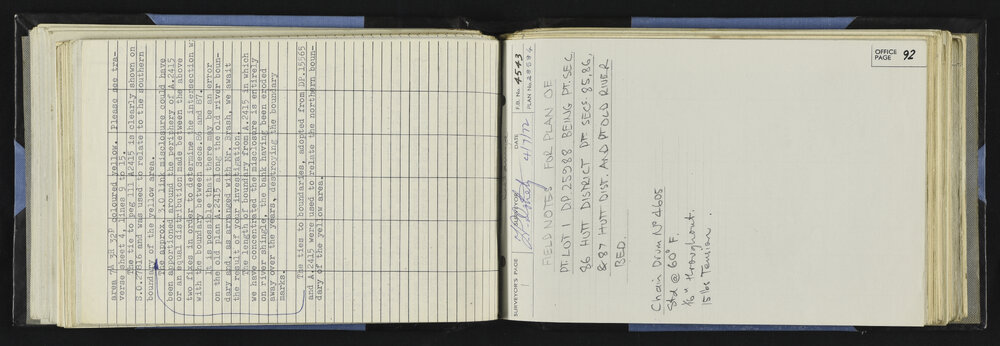 area 7A 3R 32P coloured yellow. Please see tra-
verse sheet 4, lines 9 to 15.
The tie to peg 111 A2415 is clearly shown on
S.O. 27816 and was used to relate to the southern
boundary of the yellow area.
The approx. 3.0 link misclosure could have
been apportioned around the periphery of A.2415
or an equal distribution made between the above
two fixes in order to determine the intersection w
with the boundary between Secs.86 and 87.
It is possible that there may be an error
on the old plan A.2415 along the old river boun-
dary and, as arranged with Mr. Brash, we await
the result of your investigation.
The length of boundary from A.2415 in which
we have concentrated the misclosure is entirely
on river shingle, the bank having been eroded
away over the years, destroying the boundary
marks.
The ties to boundaries, adopted from DP.15565
and A.2415 were used to relate the northern boun-
dary of the yellow area.
SURVEYOR'S PAGE 1
DATE 4/7/72
F.B. No. 4543
PLAN No. 28584
OFFICE PAGE 92
FIELD NOTES FOR PLAN OF
PT LOT 1 DP 25988 BEING PT. SEC
86 HUTT DISTRICT PT SECS. 85, 86,
& 87 HUTT DIST. AND PT OLD RIVER
BED.
Chain Drum No 4605
Std @ 60° F.
16 u throughout.
15 lbs Tension.